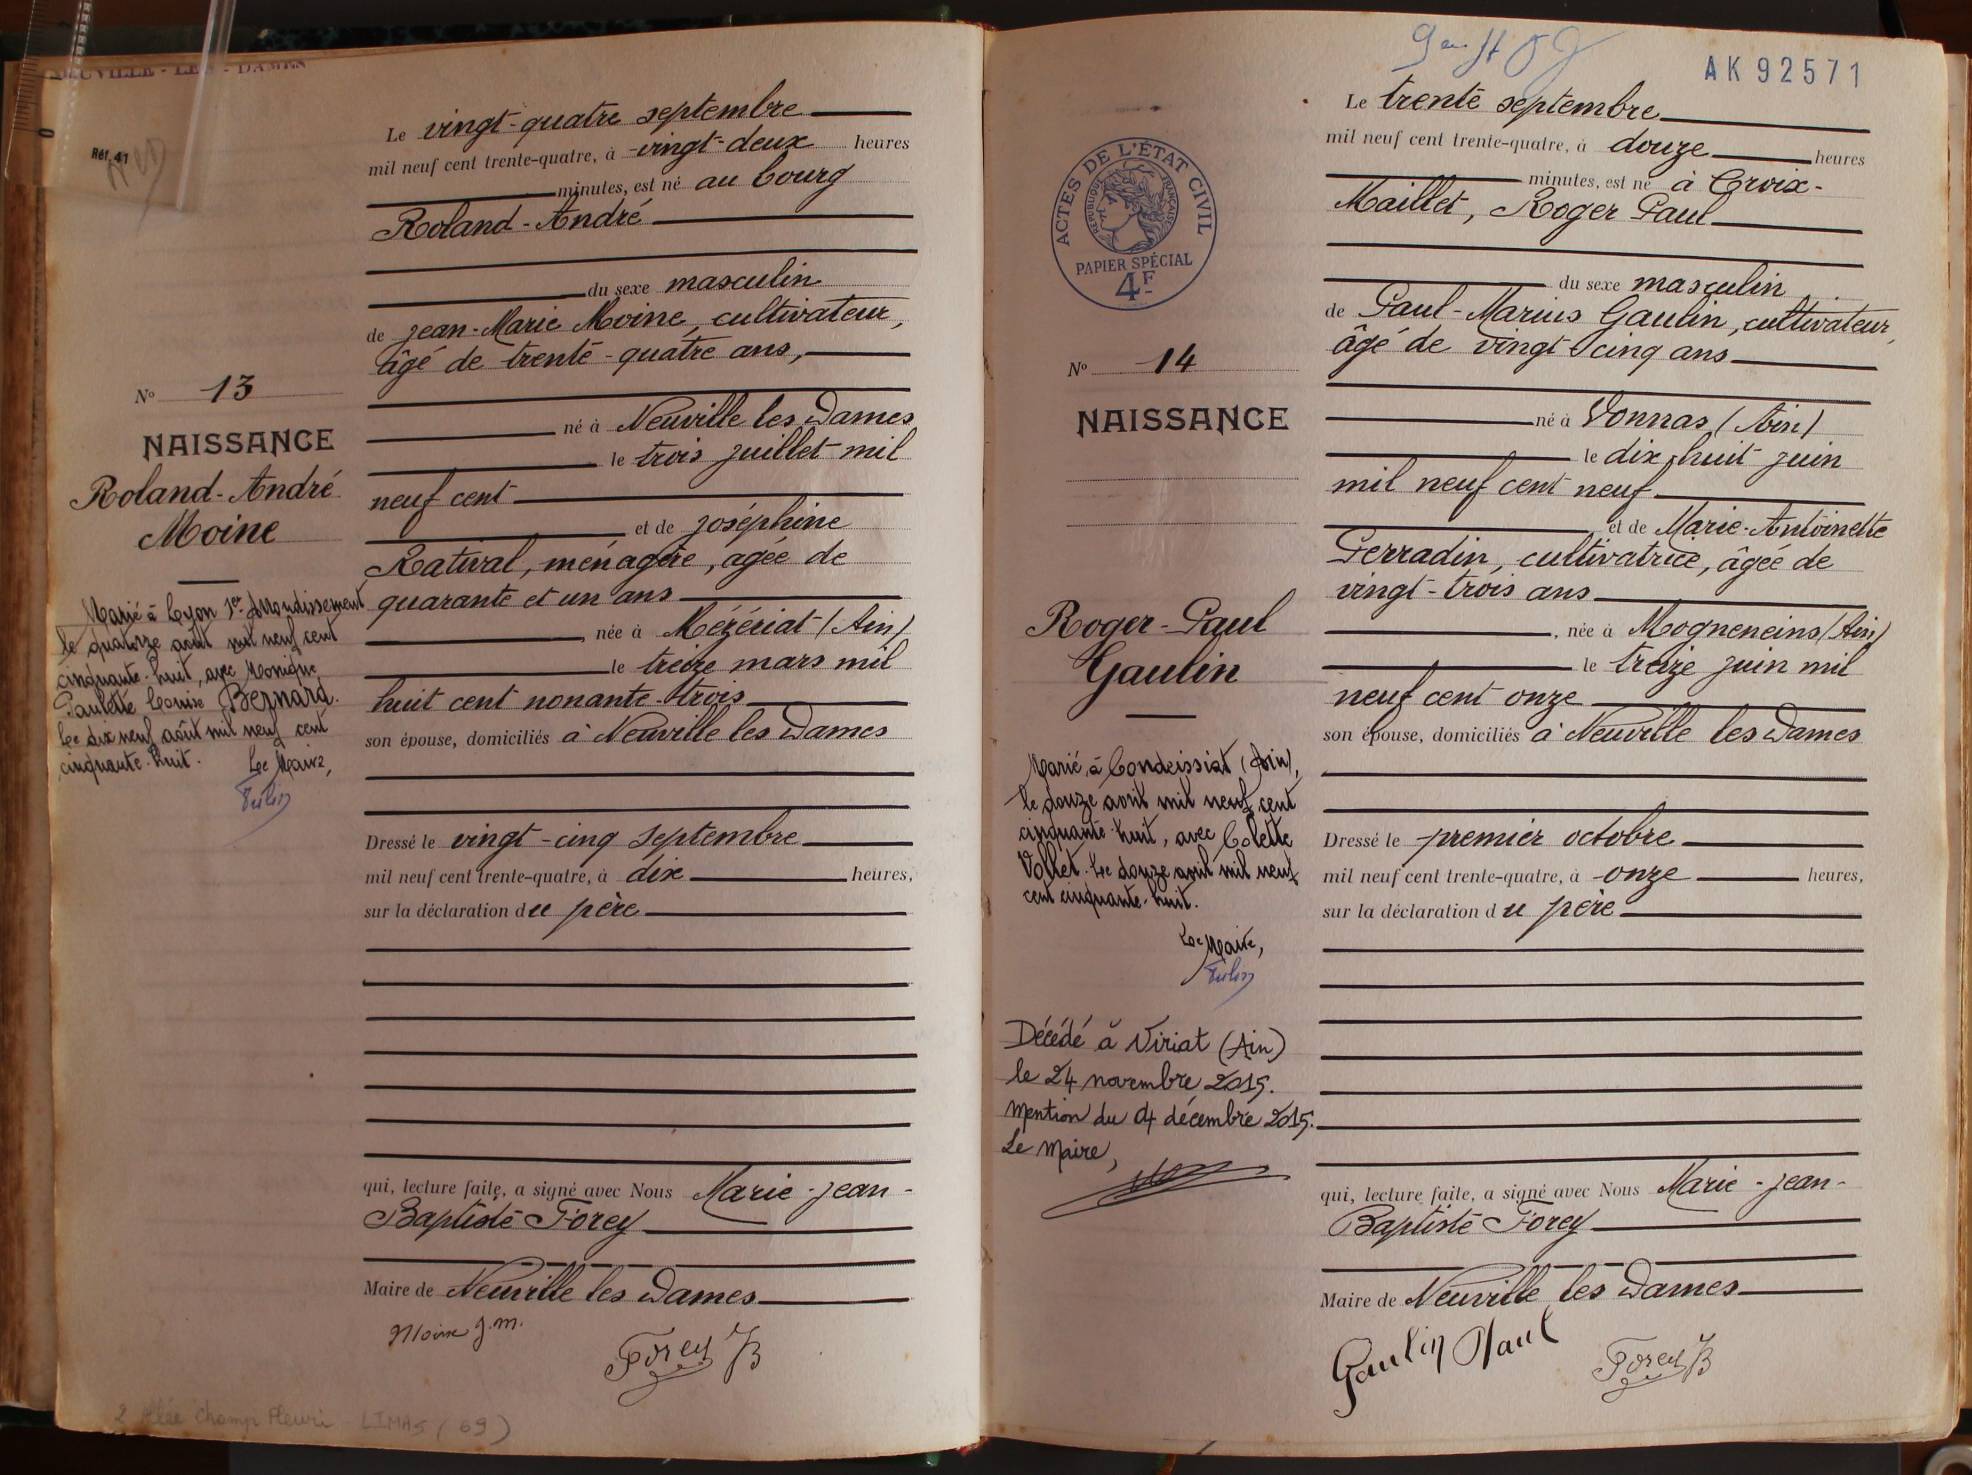 NEUVILLE - LES - DAMES
Réf. 41
0
Le vingt-quatre septembre
mil neuf cent trente-quatre, à vingt-deux heures
minutes, est né au bourg
Roland-André
du sexe masculin
de Jean-Marie Moine, cultivateur,
âgé de trente-quatre ans,
né à Neuville les Dames
le trois juillet mil
neuf cent
et de Joséphine
Ratival, ménagère, âgée de
quarante et un ans
, née à Mézériat (Ain)
le treize mars mil
huit cent nonante-trois
son épouse, domiciliés à Neuville les Dames
Dressé le vingt-cinq septembre
mil neuf cent trente-quatre, à dix heures,
sur la déclaration du père
qui, lecture faite, a signé avec Nous Marie-Jean-
Baptiste Forey
Maire de Neuville les Dames
Moine J.M.
Forey JB
No 13
NAISSANCE
Roland-André
Moine
Marié à Lyon 1er Arrondissement
le quatorze août mil neuf cent
cinquante-huit, avec Monique
Paulette Louise Bernard.
Le dix neuf août mil neuf cent
cinquante-huit.
Le Maire,
2 Allée Champ Fleuri - LIMAS (69)
AK 92571
ACTES DE L'ÉTAT CIVIL
RÉPUBLIQUE FRANÇAISE
PAPIER SPÉCIAL
4F
No 14
NAISSANCE
Roger-Paul
Gaulin
Marié à Condeissiat (Ain),
le douze avril mil neuf cent
cinquante-huit, avec Colette
Vollet. Le douze avril mil neuf
cent cinquante-huit.
Le Maire,
Décédé à Viriat (Ain)
le 24 novembre 2015.
Mention du 04 décembre 2015.
Le Maire,
Le trente septembre
mil neuf cent trente-quatre, à douze heures
minutes, est né à Croix-
Maillet, Roger Paul
du sexe masculin
de Paul-Marius Gaulin, cultivateur,
âgé de vingt-cinq ans
né à Vonnas (Ain)
le dix-huit juin
mil neuf cent neuf
et de Marie-Antoinette
Perradin, cultivatrice, âgée de
vingt-trois ans
, née à Mogneneins (Ain)
le treize juin mil
neuf cent onze
son épouse, domiciliés à Neuville les Dames
Dressé le premier octobre
mil neuf cent trente-quatre, à onze heures,
sur la déclaration du père
qui, lecture faite, a signé avec Nous Marie-Jean-
Baptiste Forey
Maire de Neuville les Dames
Gaulin Paul
Forey JB